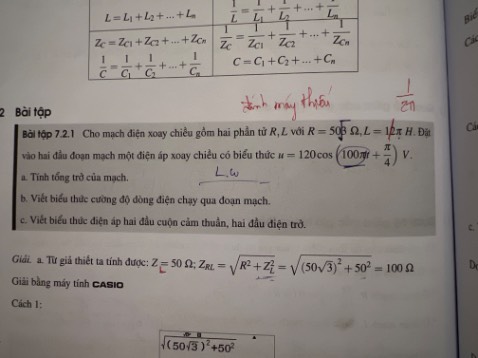 L = L₁ + L₂ + ... + Lₙ
1/L = 1/L₁ + 1/L₂ + ... + 1/Lₙ
Z_C = Z_C1 + Z_C2 + ... + Z_Cn
1/Z_C = 1/Z_C1 + 1/Z_C2 + ... + 1/Z_Cn
1/C = 1/C₁ + 1/C₂ + ... + 1/Cₙ
C = C₁ + C₂ + ... + Cₙ
đánh máy thiếu
1/2π
2 Bài tập
Bài tập 7.2.1 Cho mạch điện xoay chiều gồm hai phần tử R, L với R = 50√3 Ω, L = 1/2π H. Đặt
vào hai đầu đoạn mạch một điện áp xoay chiều có biểu thức u = 120cos(100πt + π/4) V.
a. Tính tổng trở của mạch.
L.ω
b. Viết biểu thức cường độ dòng điện chạy qua đoạn mạch.
c. Viết biểu thức điện áp hai đầu cuộn cảm thuần, hai đầu điện trở.
Giải. a. Từ giả thiết ta tính được: Z_L = 50 Ω; Z_RL = √(R² + Z_L²) = √((50√3)² + 50²) = 100 Ω
Giải bằng máy tính CASIO
Cách 1:
√((50√3)²+50²)